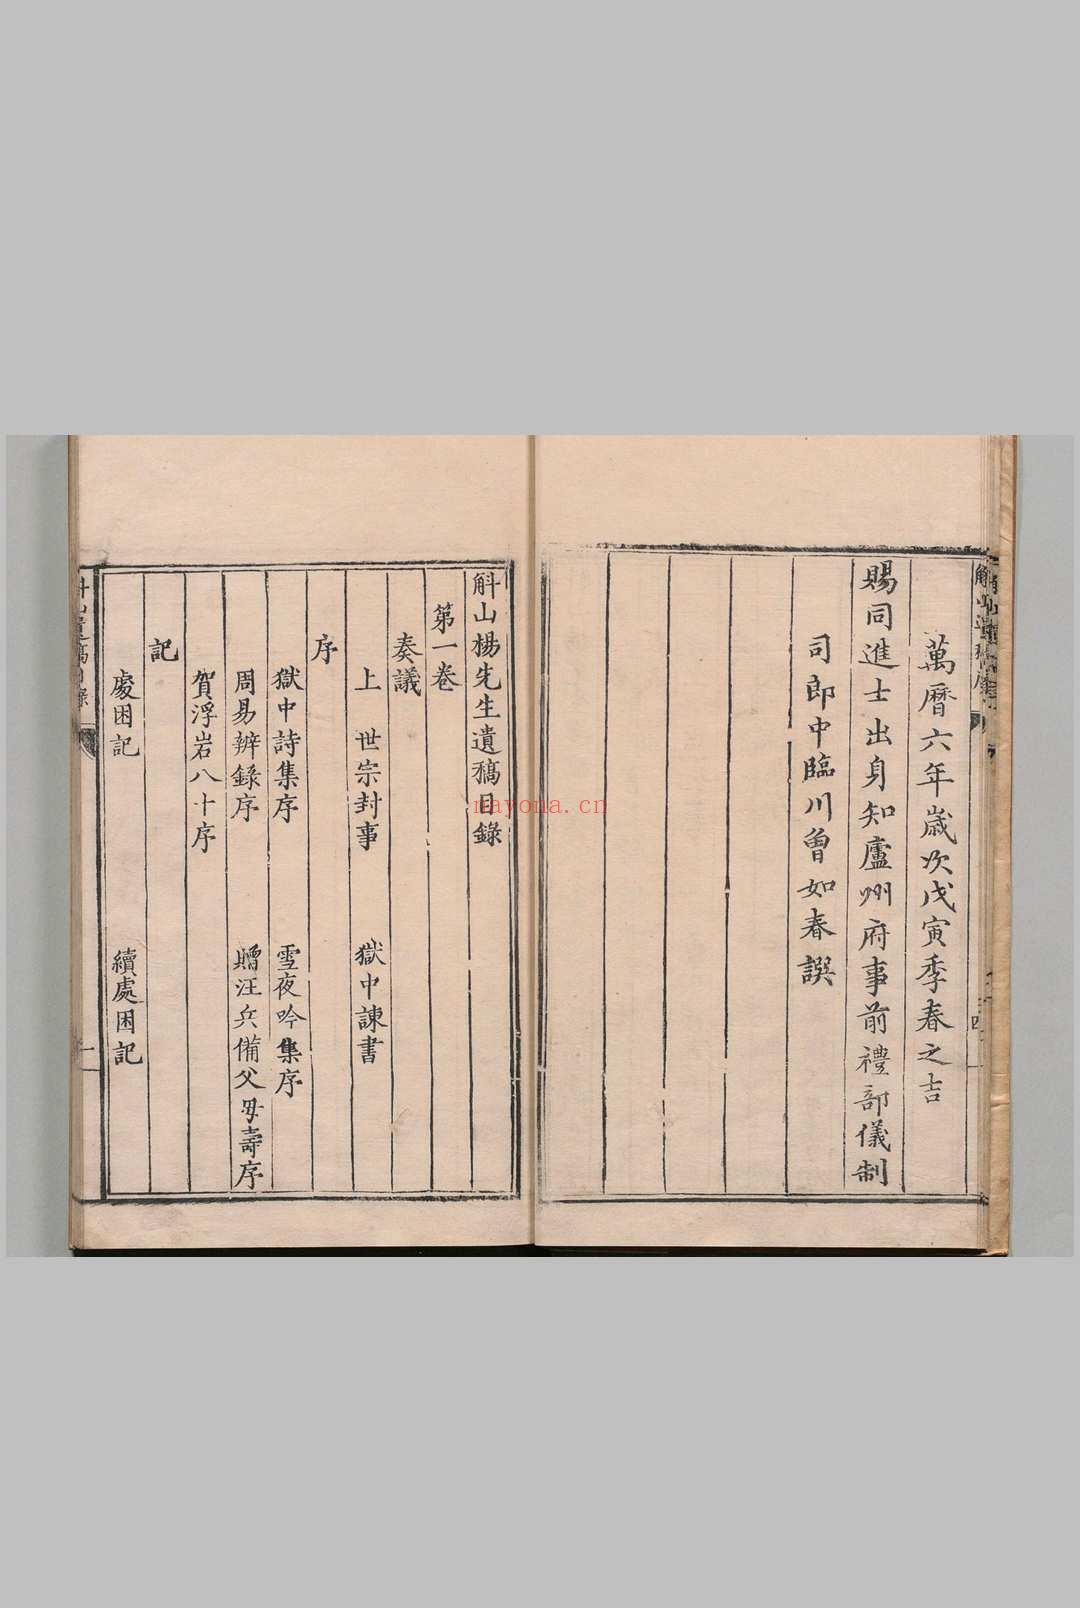 萬曆六年歲次戊寅季春之吉
賜同進士出身知廬州府事前禮部儀制
司郎中臨川曾如春譔
斛山楊先生遺稿目錄
第一卷
奏議
上 世宗封事 獄中諫書
序
獄中詩集序 雪夜吟集序
周易辨錄序 贈汪兵備父母壽序
賀浮岩八十序
記
處困記 續處困記
nayona.cn